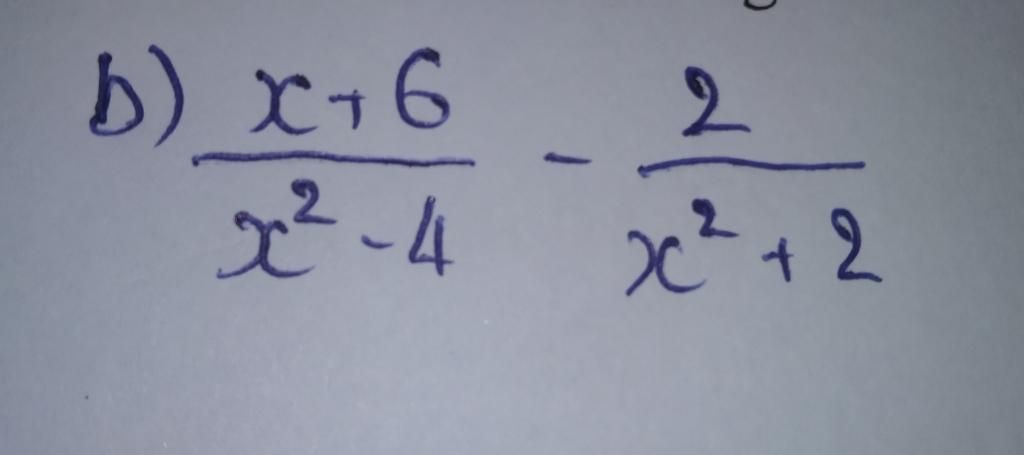 b) x+6/x²-4 - 2/x²+2